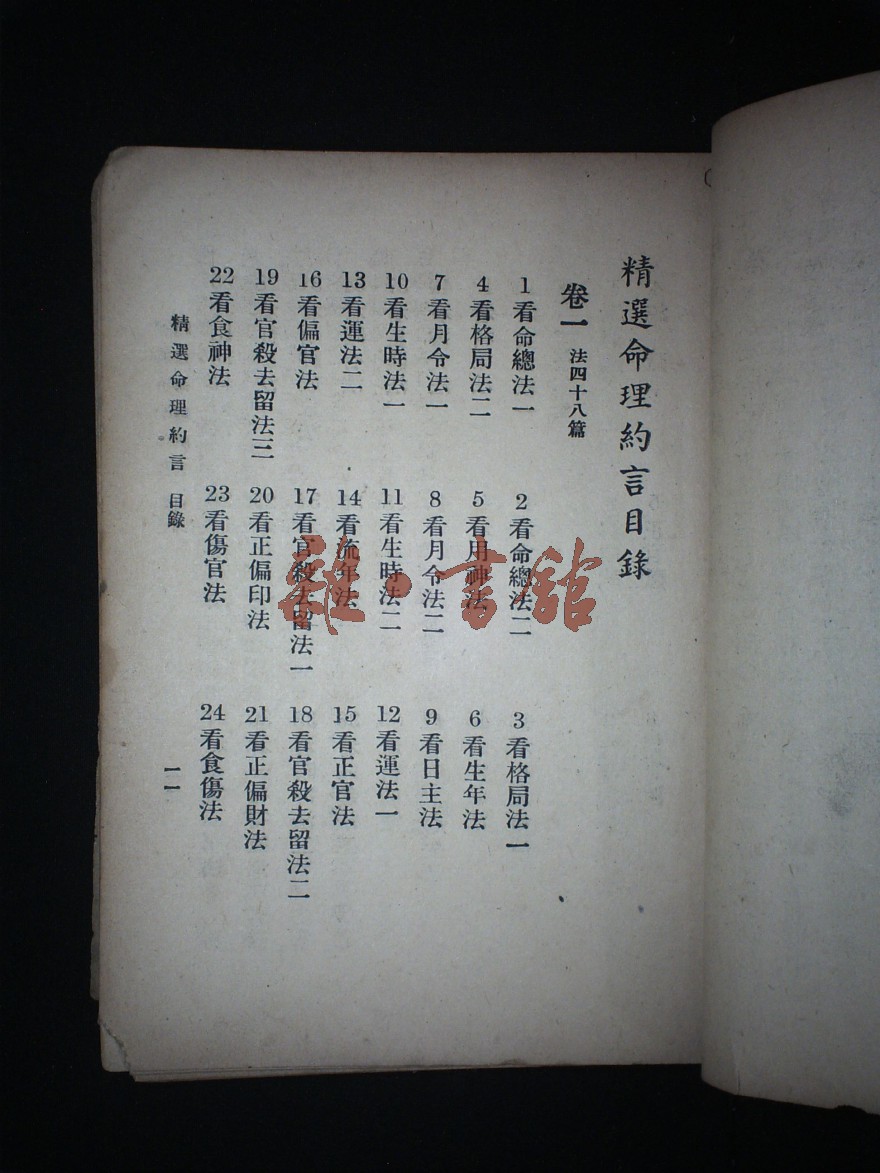 精選命理約言目錄
卷一 法四十八篇
1看命總法一 2看命總法二 3看格局法一
4看格局法二 5看用神法 6看生年法
7看月令法一 8看月令法二 9看日主法
10看生時法一 11看生時法二 12看運法一
13看運法二 14看流年法 15看正官法
16看偏官法 17看官殺去留法一 18看官殺去留法二
19看官殺去留法三 20看正偏印法 21看正偏財法
22看食神法 23看傷官法 24看食傷法
精選命理約言 目錄 一一
雜·書館